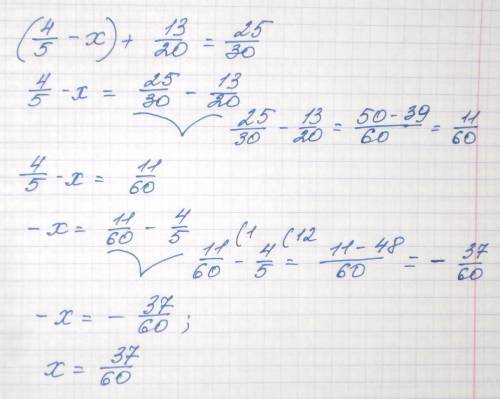 (4/5 - x) + 13/20 = 25/30
4/5 - x = 25/30 - 13/20
25/30 - 13/20 = (50-39)/60 = 11/60
4/5 - x = 11/60
-x = 11/60 - 4/5
11/60 (1 - 4/5 (12 = (11-48)/60 = - 37/60
-x = - 37/60 ;
x = 37/60